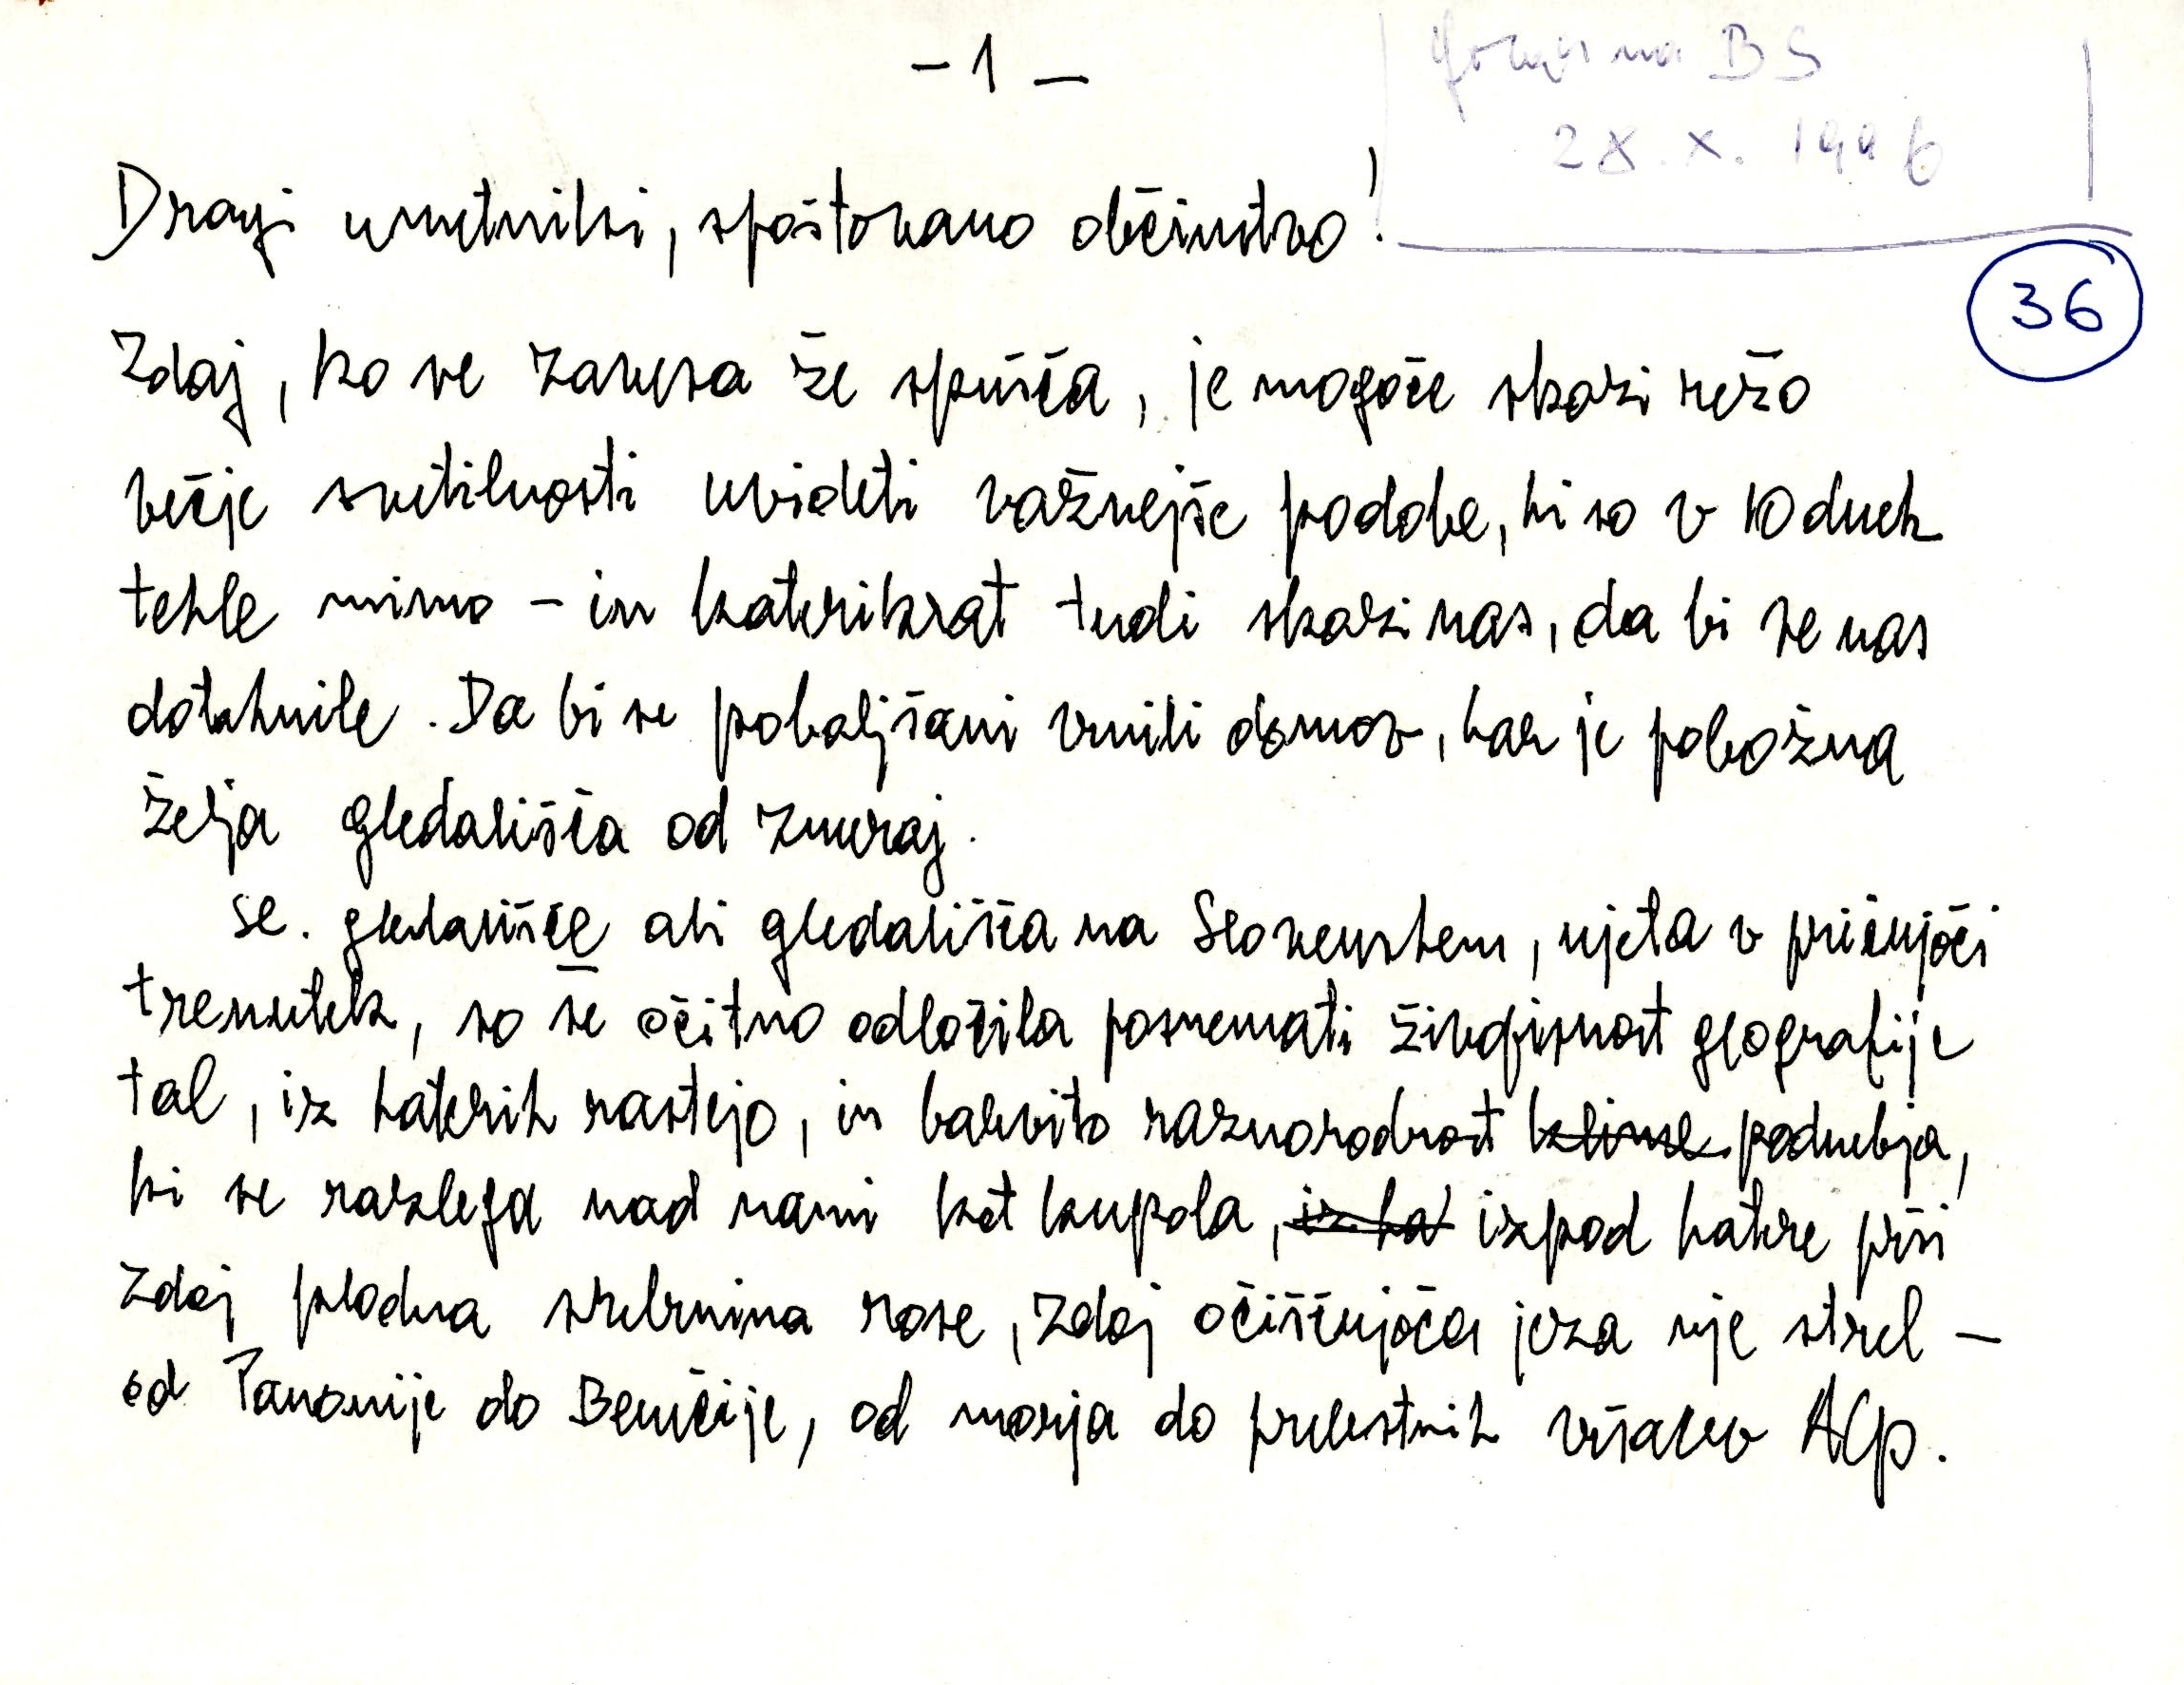 - 1 -
na BS
28. X. 1996
36
Dragi umetniki, spoštovano občinstvo!
Zdaj, ko se zavesa že spušča, je mogoče skozi režo
večje svetilnosti uvideti važnejše podobe, ki so v 10 dneh
tekle mimo - in katerikrat tudi skozi nas, da bi se nas
dotaknile. Da bi se poboljšani vrnili domov, kar je pobožna
želja gledališča od zmeraj.
se. gledališče ali gledališča na Slovenskem, ujeta v pričujoči
trenutek, so se očitno odločila posnemati živopisnost geografije
tal, iz katerih rastejo, in barvito raznorodnost klime podnebja,
ki se razlega nad nami kot kupola, iz ka izpod katere prši
zdaj plodna srebrnina rose, zdaj očiščujoča jeza nje strel -
od Panonije do Benečije, od morja do prelestnih vršacev Alp.